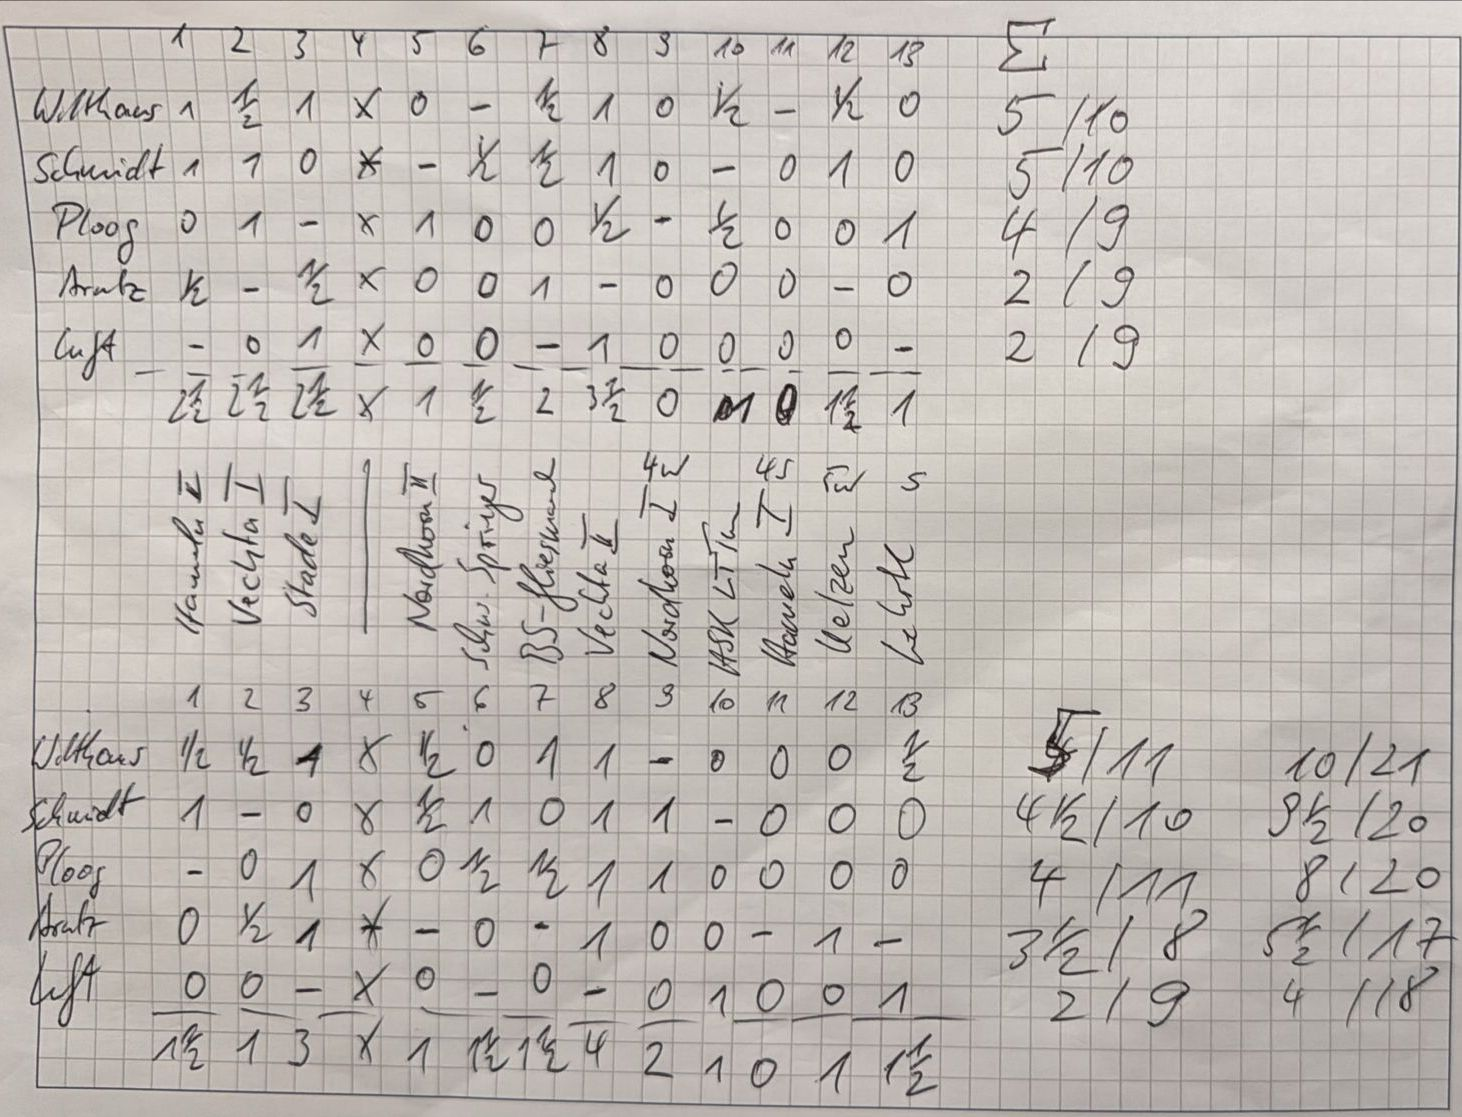 1 2 3 4 5 6 7 8 9 10 11 12 13 Σ
Wilthaus 1 ½ 1 x 0 - ½ 1 0 ½ - ½ 0 5 /10
Schmidt 1 1 0 x - ½ ½ 1 0 - 0 1 0 5 /10
Ploog 0 1 - x 1 0 0 ½ - ½ 0 0 1 4 /9
Aratz ½ - ½ x 0 0 1 - 0 0 0 - 0 2 /9
Luft - 0 1 x 0 0 - 1 0 0 0 0 - 2 /9
2½ 2½ 2½ x 1 ½ 2 3½ 0 1 0 1½ 1
Hameln II
Vechta I
Stade I
Nordhorn II
Schw. Springer
Vechta II
Nordhorn I 4W
HSK
Hameln I 4S
Uelzen 5W
Lehrte S
1 2 3 4 5 6 7 8 9 10 11 12 13
Wilthaus ½ ½ 1 x ½ 0 1 1 - 0 0 0 ½ 5/11 10/21
Schmidt 1 - 0 x ½ 1 0 1 1 - 0 0 0 4½/10 9½/20
Ploog - 0 1 x 0 ½ ½ 1 1 0 0 0 0 4 /11 8/20
Aratz 0 ½ 1 x - 0 - 1 0 0 - 1 - 3½/8 5½/17
Luft 0 0 - x 0 - 0 - 0 1 0 0 1 2/9 4 /18
1½ 1 3 x 1 1½ 1½ 4 2 1 0 1 1½